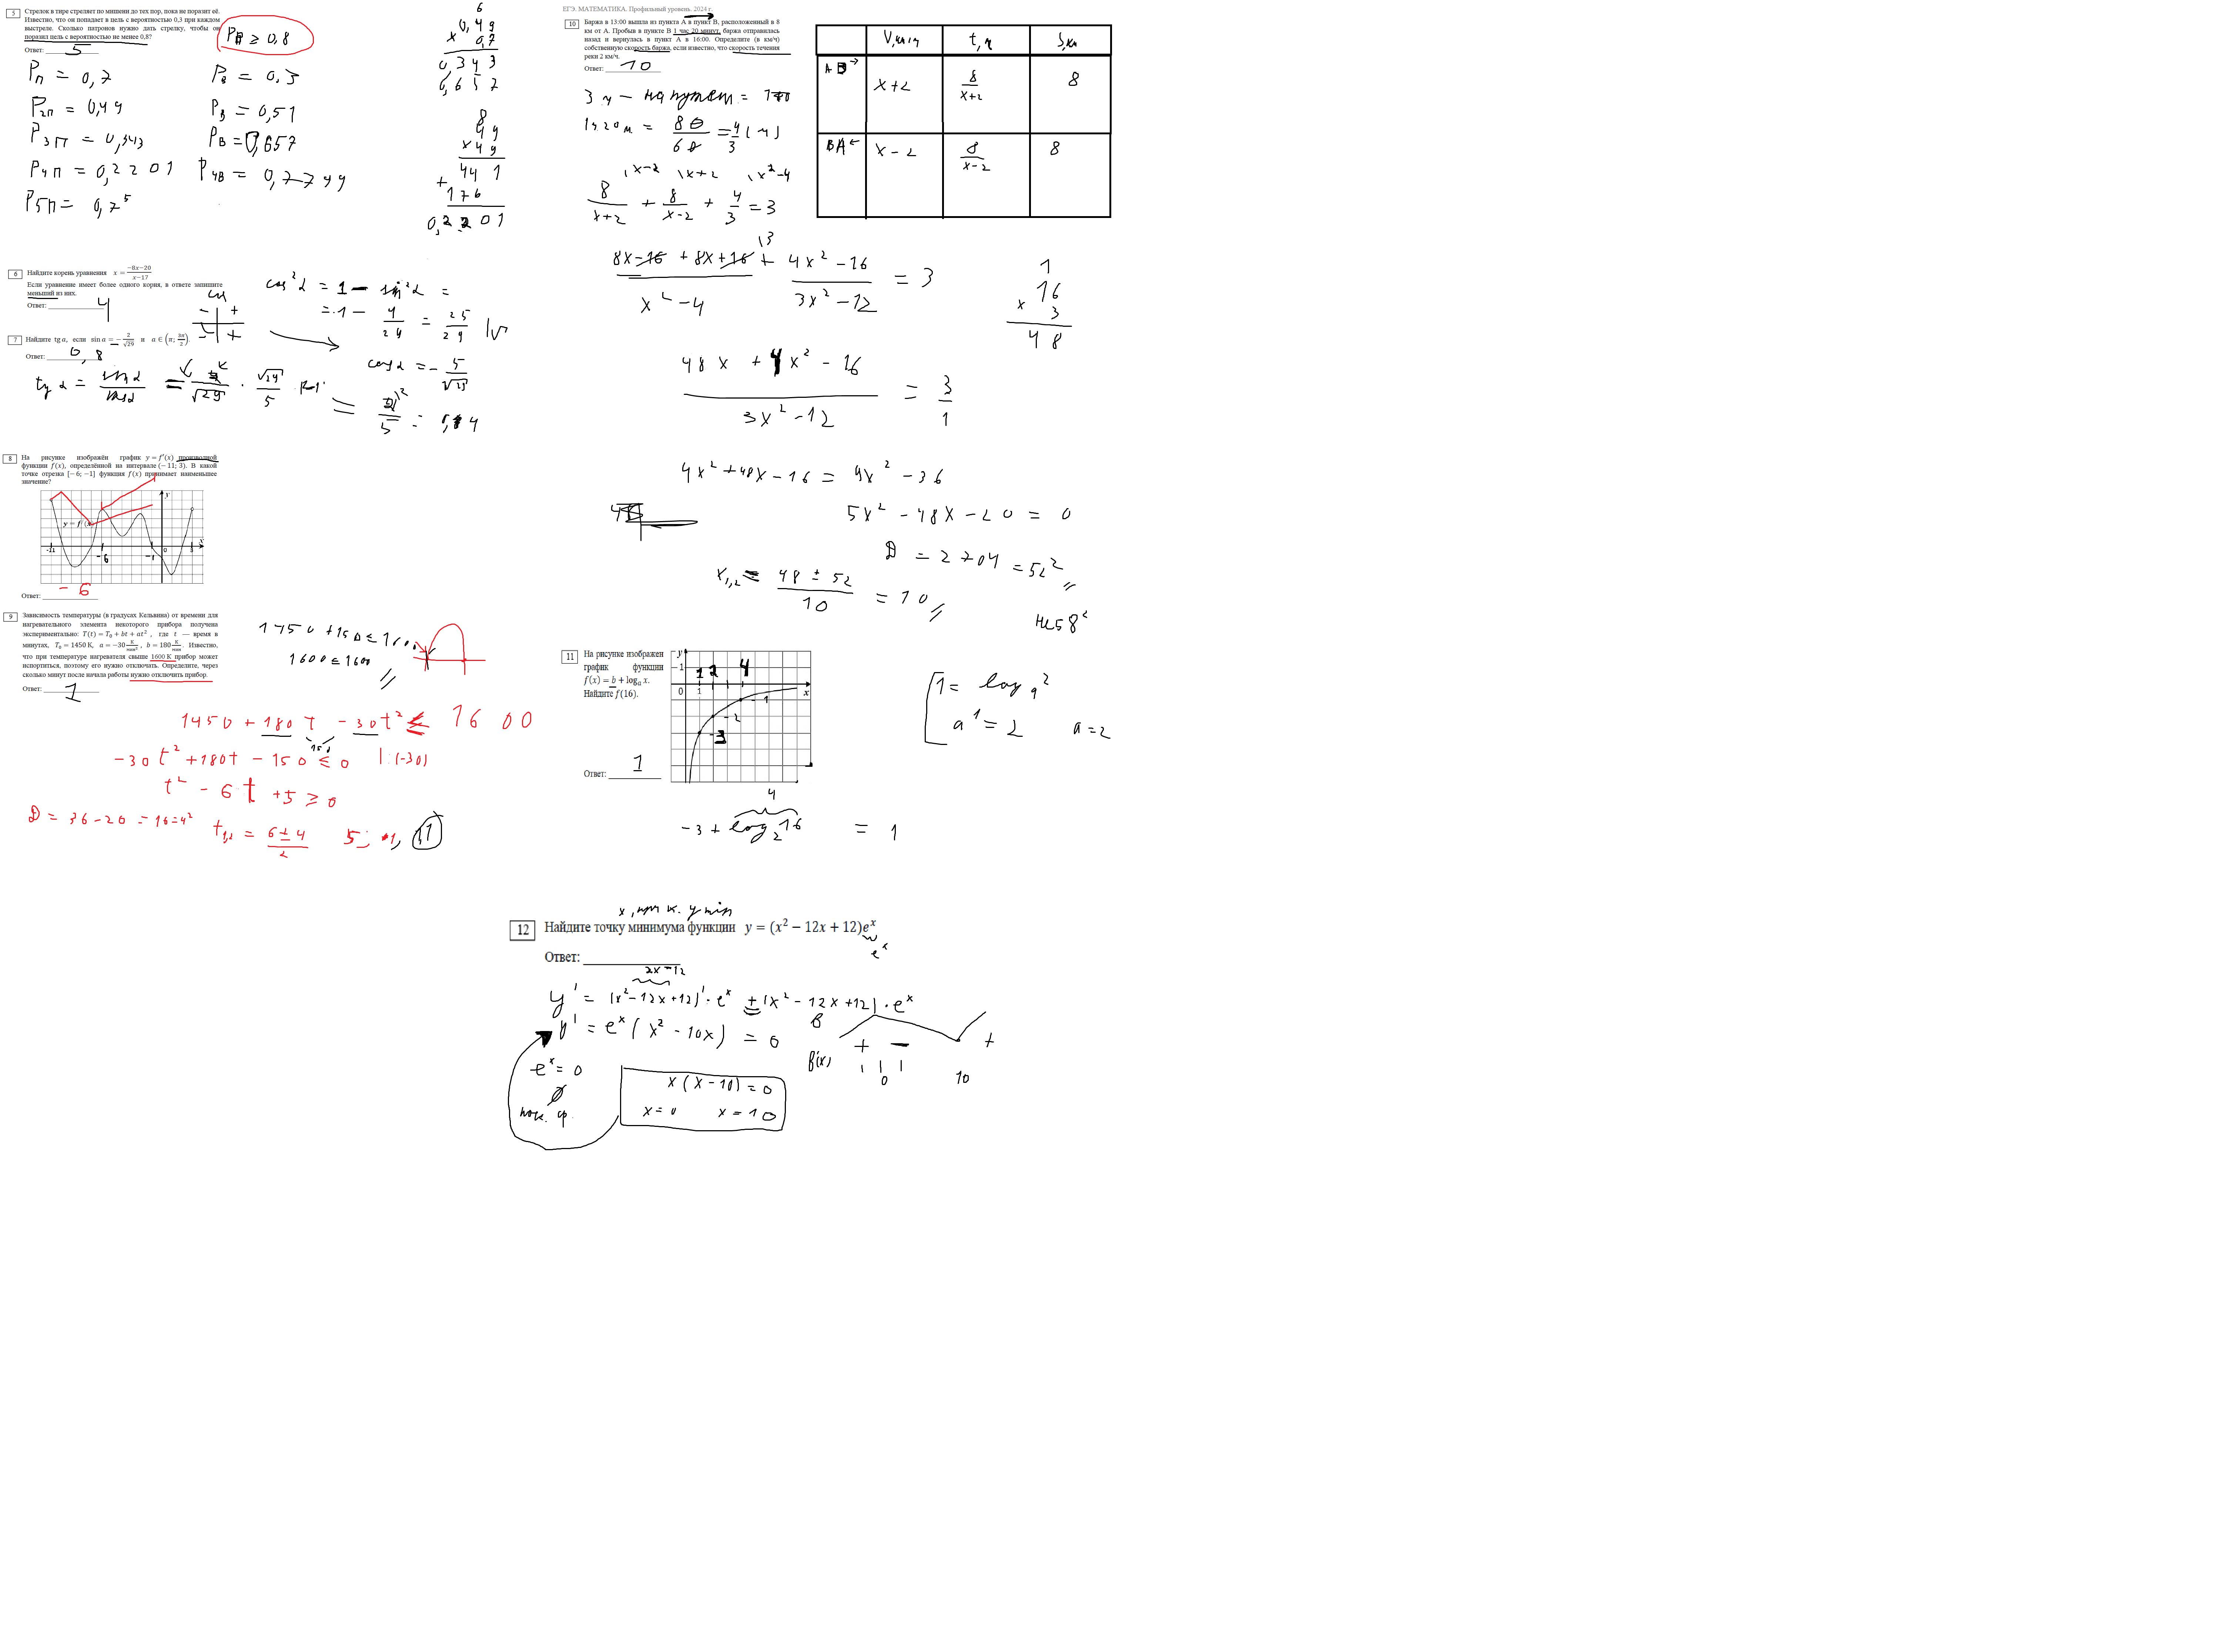 5
Стрелок в тире стреляет по мишени до тех пор, пока не поразит её.
Известно, что он попадает в цель с вероятностью 0,3 при каждом
выстреле. Сколько патронов нужно дать стрелку, чтобы он
поразил цель с вероятностью не менее 0,8?
Ответ: 5
≥ 0,8
Pп = 0,7
P2п = 0,49
P3п = 0,343
P4п = 0,2201
P5п = 0,7⁵
Pв = 0,3
Pв = 0,51
Pв = 0,657
P4в = 0,7799
6
0,49
× 0,7
0,343
0,657
8
49
×49
441
+
176
0,2201
6
Найдите корень уравнения x = (−8x−20)/(x−17)
Если уравнение имеет более одного корня, в ответе запишите
меньший из них.
Ответ: 4
7
Найдите tg α, если sin α = −2/√29 и α ∈ (π; 3π/2).
Ответ: 0,8
cos²α = 1 − sin²α =
= 1 − 4/29 = 25/29 |√
cos α = −5/√29
tg α =
8
На рисунке изображён график y = f′(x) производной
функции f(x), определённой на интервале (−11; 3). В какой
точке отрезка [−6; −1] функция f(x) принимает наименьшее
значение?
y
y = f′(x)
-11 -6 -1 0 3 x
Ответ: -6
9
Зависимость температуры (в градусах Кельвина) от времени для
нагревательного элемента некоторого прибора получена
экспериментально: T(t) = T₀ + bt + at², где t — время в
минутах, T₀ = 1450 К, a = −30 К/мин², b = 180 К/мин. Известно,
что при температуре нагревателя свыше 1600 К прибор может
испортиться, поэтому его нужно отключать. Определите, через
сколько минут после начала работы нужно отключить прибор.
Ответ: 1
1450 + 150 ≤ 1600
1600 ≤ 1600
1450 + 180t − 30t² ≤ 1600
150
−30t² + 180t − 150 ≤ 0 |:(-30)
t² − 6t + 5 ≥ 0
D = 36−20 = 16=4²
t1,2 = (6±4)/2 5; 1, 1
ЕГЭ. МАТЕМАТИКА. Профильный уровень 2024 г.
10
Баржа в 13:00 вышла из пункта А в пункт В, расположенный в 8
км от А. Пробыв в пункте В 1 час 20 минут, баржа отправилась
назад и вернулась в пункт А в 16:00. Определите (в км/ч)
собственную скорость баржи, если известно, что скорость течения
реки 2 км/ч.
Ответ: 10
V, км/ч t, ч S, км
AB→ x+2 8/(x+2) 8
BA← x−2 8/(x−2) 8
3 ч —
1ч 20м = 80/60 = 4/3 (ч)
\x−2 \x+2 \x²−4
8/(x+2) + 8/(x−2) + 4/3 = 3
\3
(8x−16 + 8x+16)/(x²−4) + (4x²−16)/(3x²−12) = 3
1
16
× 3
48
(48x + 4x² − 16)/(3x²−12) = 3/1
4x² + 48x − 16 = 9x² − 36
5x² − 48x − 20 = 0
D = 2704 = 52²
x1,2 = (48 ± 52)/10 = 10
11
На рисунке изображен
график функции
f(x) = b + logₐ x.
Найдите f(16).
Ответ: 1
y
1 1 2 4
0 1 x
-1
-2
-3
1 = logₐ2
a¹ = 2 a = 2
4
−3 + log₂16 = 1
12
Найдите точку минимума функции y = (x² − 12x + 12)eˣ
eˣ
Ответ:
2x−12
y′ = (x²−12x+12)′·eˣ + (x² − 12x + 12)·eˣ
y′ = eˣ(x² − 10x) = 0
eˣ = 0
∅
x(x−10) = 0
x = 0 x = 10
f
f′(x) + − +
0 10